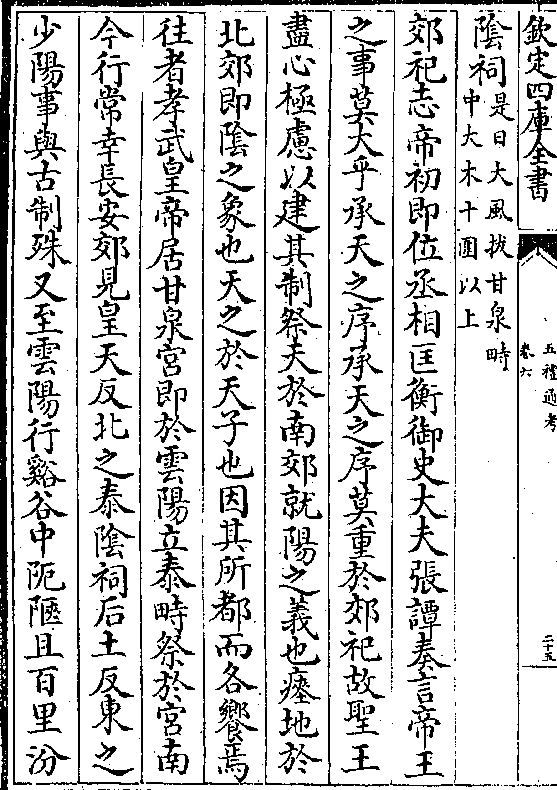 欽定四庫全書
五禮通考
卷六
二十五
陰祠
是日大風拔甘泉畤
中大木十圍以上
郊祀志帝初即位丞相匡衡御史大夫張譚奏言帝王
之事莫大乎承天之序承天之序莫重於郊祀故聖王
盡心極慮以建其制祭天於南郊就陽之義也瘞地於
北郊即陰之象也天之於天子也因其所都而各饗焉
往者孝武皇帝居甘泉宮即於雲陽立泰畤祭於宮南
今行常幸長安郊見皇天反北之泰陰祠后土反東之
少陽事與古制殊又至雲陽行谿谷中阨陿且百里汾